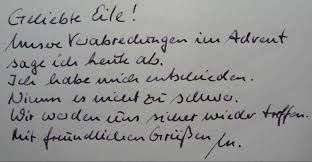 Geliebte Eile!
Unsere Verabredungen im Advent
sage ich heute ab.
Ich habe mich entschieden.
Nimm es nicht zu schwer.
Wir werden uns sicher wieder treffen.
Mit freundlichen Grüßen M.